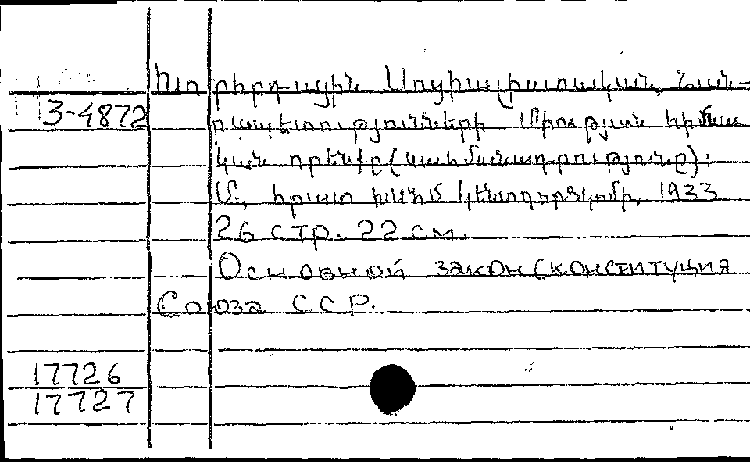 Խորհրդային Սոցիալիստական Հան-
3-4872
րապետությունների Միության հիմնա
կան օրենքը (սահմանադրությունը):
Մ., հրատ. ԽՍՀՄ կենտգործկոմի, 1933
26 стр. 22 см.
Основной закон (конституция
Союза ССР.
17726
17727